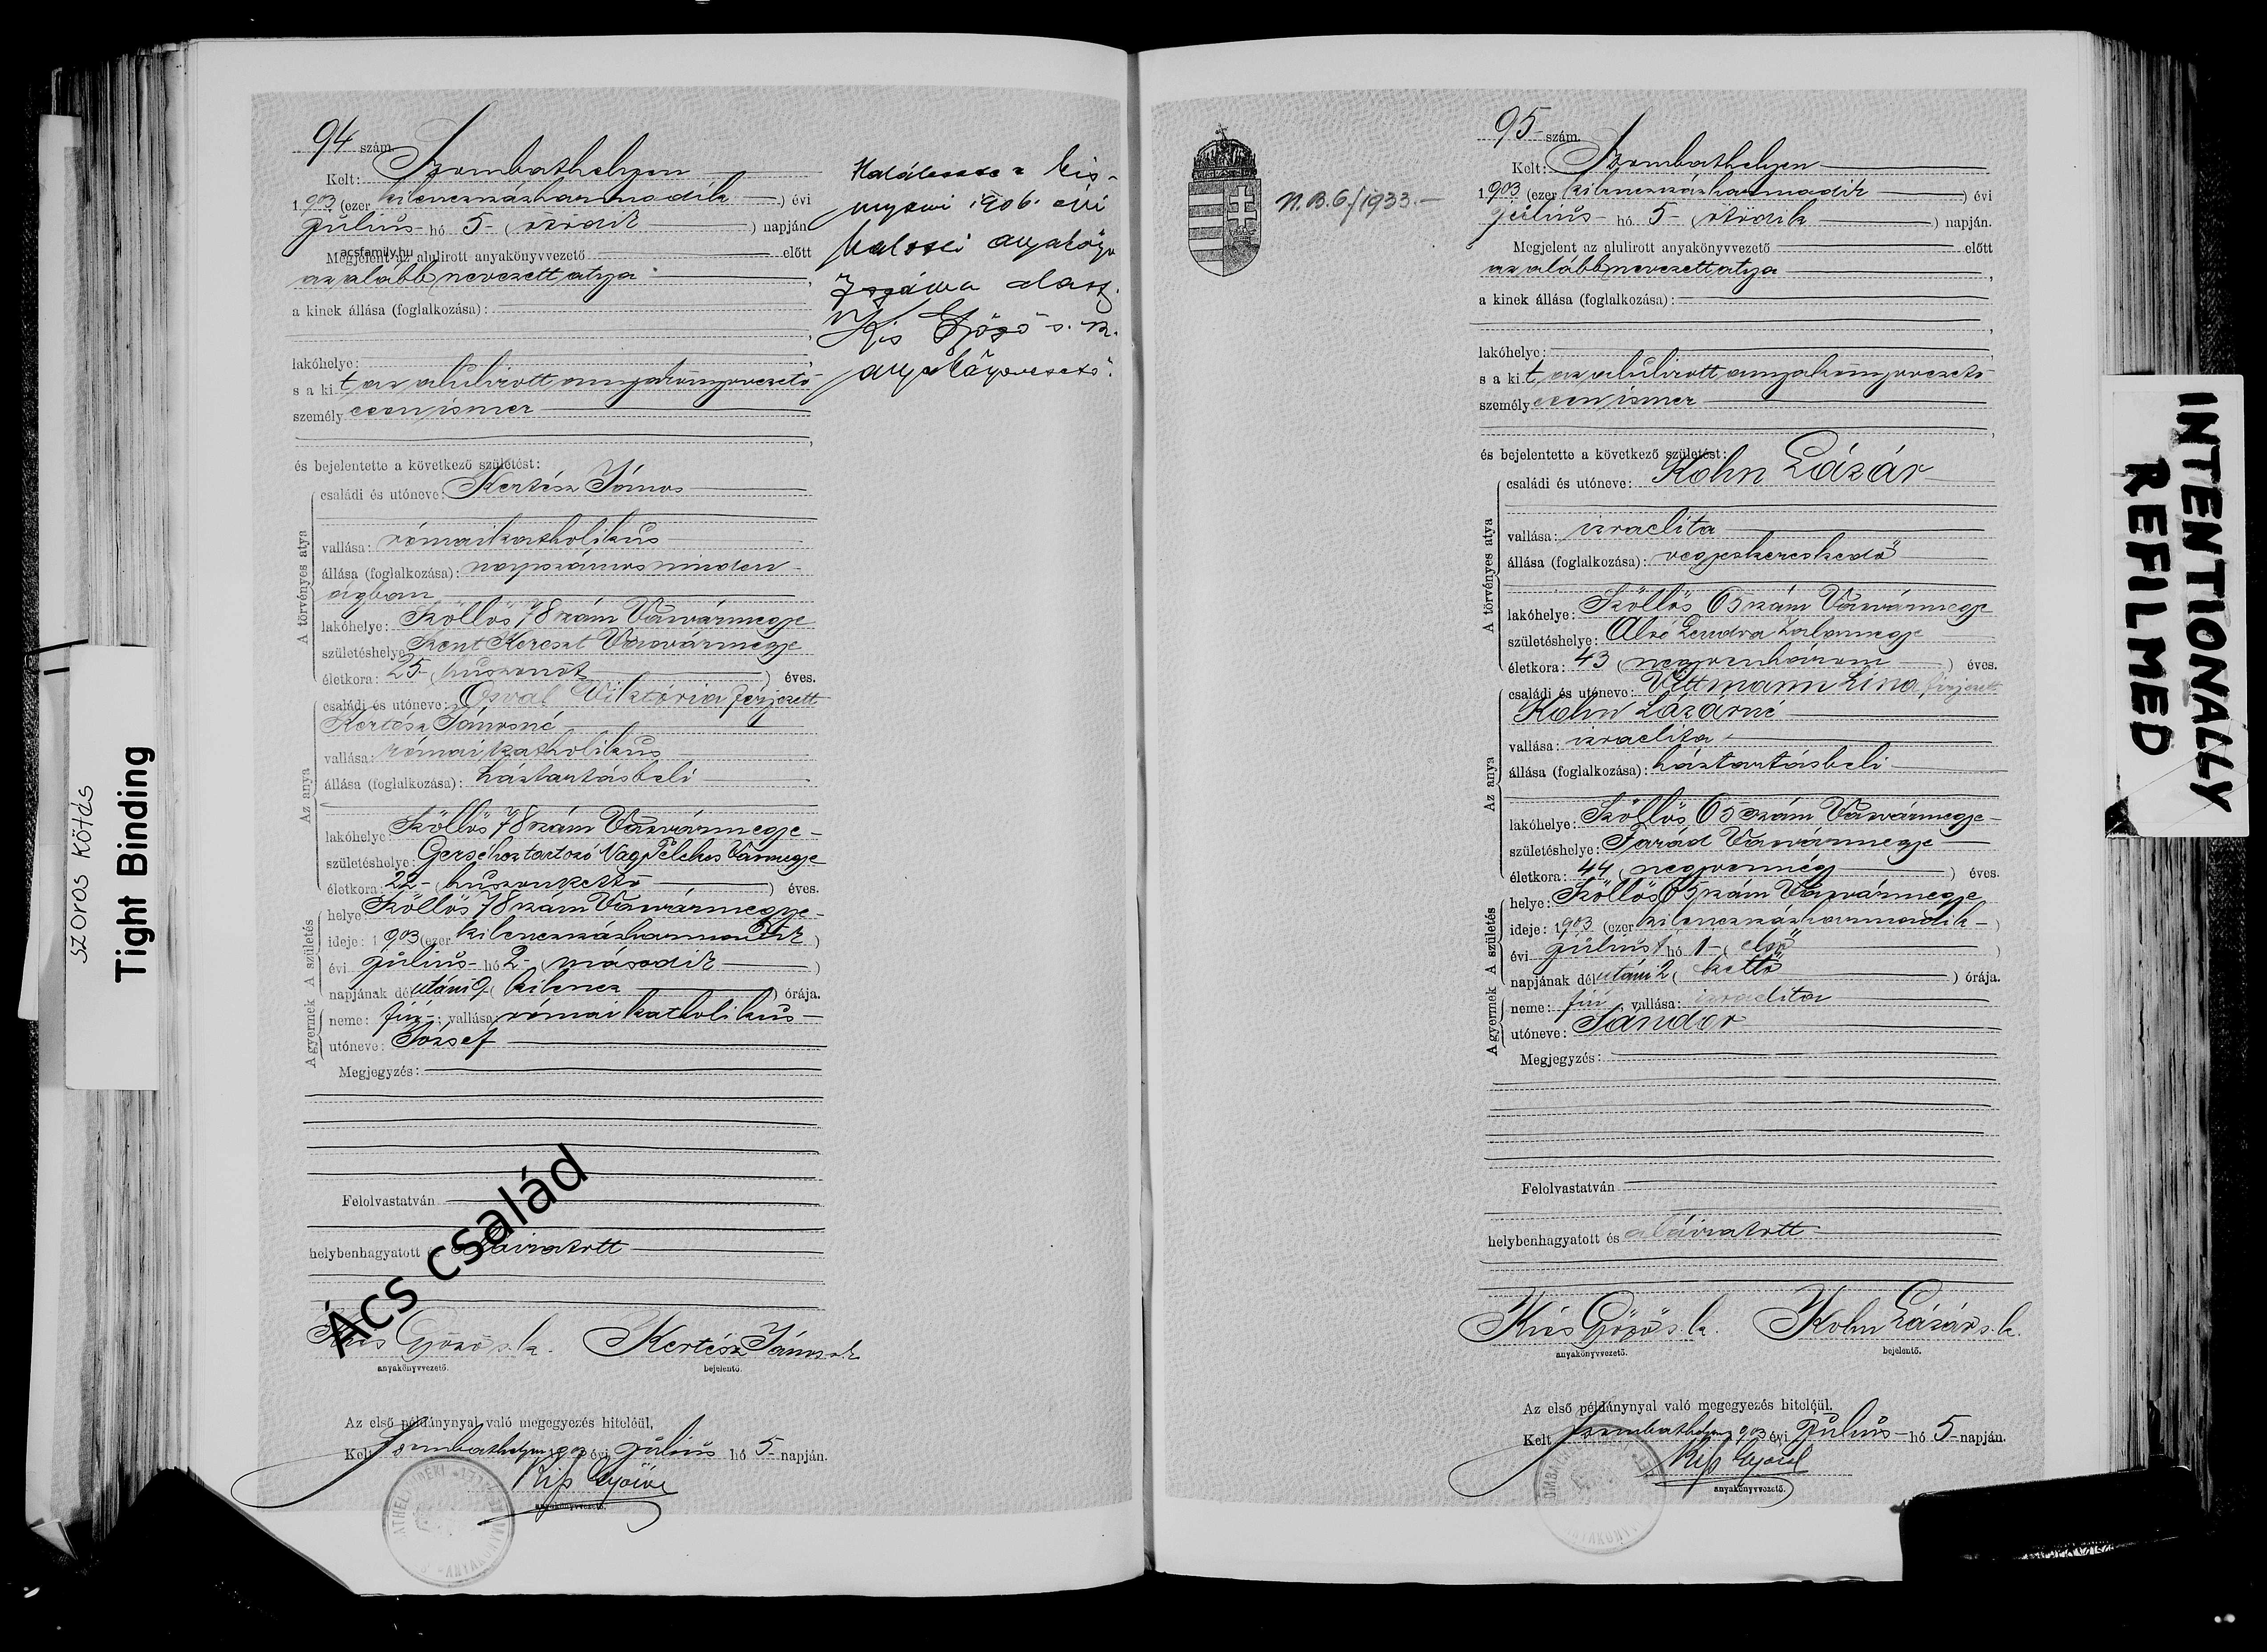 szoros kötás
Tight Binding
94 szám.
Kelt: Szombathelyen
1903 (ezer kilenczszázharmadik) évi
Július hó 5- (ötödik) napján
acsfamily.hu
Megjelent az alulirott anyakönyvvezető előtt
az alább nevezett atya,
a kinek állása (foglalkozása):
lakóhelye:
s a kit az alulirott anyakönyvvezető
személyesen ismer
és bejelentette a következő születést:
A törvényes atya
családi és utóneve: Kertész János
vallása: római katholikus
állása (foglalkozása): napszámos minden-
ágban
lakóhelye: Szöllős 78 szám Vasvármegye
születéshelye: Szent Kereszt Vasvármegye
életkora: 25- (huszonöt) éves.
Az anya
családi és utóneve: Oswal Viktória férjezett
Kertész Jánosné
vallása: római katholikus
állása (foglalkozása): háztartásbeli
lakóhelye: Szöllős 78 szám Vasvármegye-
születéshelye: Gerséhez tartozó Nagy Vasmegye
életkora: 22- (huszonkettő) éves.
A gyermek A születés
helye: Szöllős 78 szám Vasvármegye-
ideje: 1903 (ezer kilenczszázharmadik)
évi Július- hó 2- (második)
napjának délutáni 9 (kilencz) órája.
neme: fiú-; vallása: római katholikus-
utóneve: József
Megjegyzés:
Felolvastatván
helybenhagyatott és aláiratott
Ács család
Kiss Győző s. k. Kertész János s. k.
anyakönyvvezető. bejelentő.
Az első példánynyal való megegyezés hiteléül,
Kelt Szombathelyen 1903 évi Július hó 5- napján.
Kiss Győző
anyakönyvvezető.
1906. évi
halotti anyakönyv
7 száma alatt.
Kis Győző s. k.
anyakönyvvezető.
N.B.6/1933.-
95- szám.
Kelt: Szombathelyen
1903 (ezer kilenczszázharmadik) évi
Július- hó 5- (ötödik) napján.
Megjelent az alulirott anyakönyvvezető előtt
az alább nevezett atya,
a kinek állása (foglalkozása):
lakóhelye:
s a kit az alulirott anyakönyvvezető
személyesen ismer
és bejelentette a következő születést:
A törvényes atya
családi és utóneve: Kohn Lázár
vallása: izraelita
állása (foglalkozása): vegyeskereskedő
lakóhelye: Szöllős 65 szám Vasvármegye
születéshelye: Alsó Lendva Zalamegye
életkora: 43 (negyvenhárom) éves.
Az anya
családi és utóneve: Vittmann Lina férjezett
Kohn Lázárné
vallása: izraelita
állása (foglalkozása): háztartásbeli
lakóhelye: Szöllős 65 szám Vasvármegye-
születéshelye: Tarád Vasvármegye
életkora: 44 (negyvennégy) éves.
A gyermek A születés
helye: Szöllős 65 szám Vasvármegye
ideje: 1903 (ezer kilenczszázharmadik-)
évi Július hó 1- (első)
napjának délutáni 2 (kettő) órája.
neme: fiú vallása: izraelita
utóneve: Sándor
Megjegyzés:
Felolvastatván
helybenhagyatott és aláiratott
Kiss Győző s. k. Kohn Lázár s. k.
anyakönyvvezető. bejelentő.
Az első példánynyal való megegyezés hiteléül,
Kelt Szombathelyen 1903 évi Július- hó 5- napján.
Kiss Győző
anyakönyvvezető.
INTENTIONALLY
REFILMED